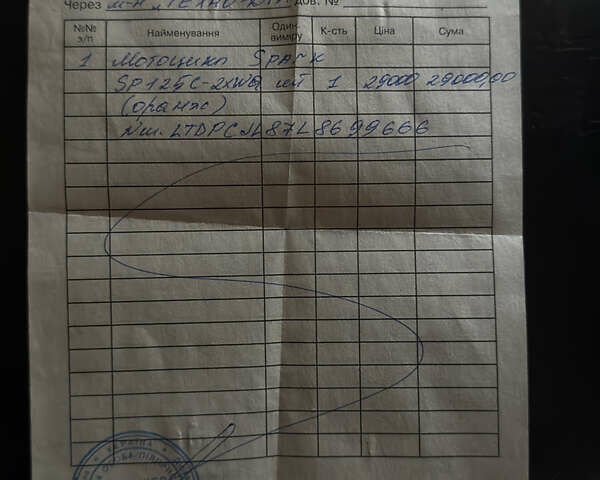 Через м-н "ТЕХНО-ДІМ" Дов. №
№№ з/п Найменування Один. виміру К-сть Ціна Сума
1 Мотоцикл Spark
SP125C-2XWQ шт 1 29000 29000,00
(оранж)
№ш. LTDPCJL87L8699666
УКРАЇНА